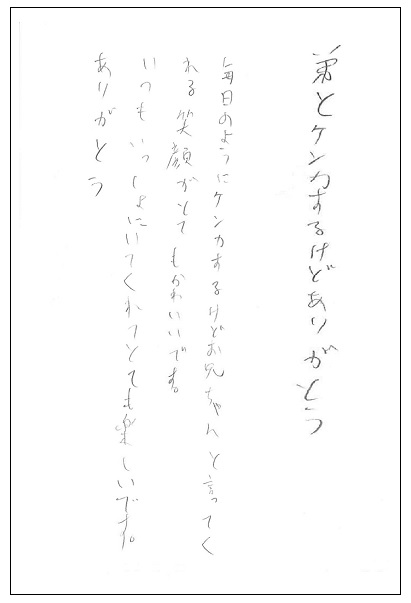 弟とケンカするけどありがとう
毎日のようにケンカするけどお兄ちゃんと言ってく
れる笑顔がとてもかわいいです。
いつもいっしょにいてくれてとても楽しいです。
ありがとう